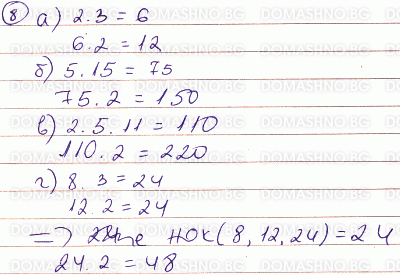 8 а) 2.3 = 6
6.2 = 12
б) 5.15 = 75
75.2 = 150
в) 2.5.11 = 110
110.2 = 220
г) 8.3 = 24
12.2 = 24
=> НОК(8, 12, 24) = 24
24.2 = 48